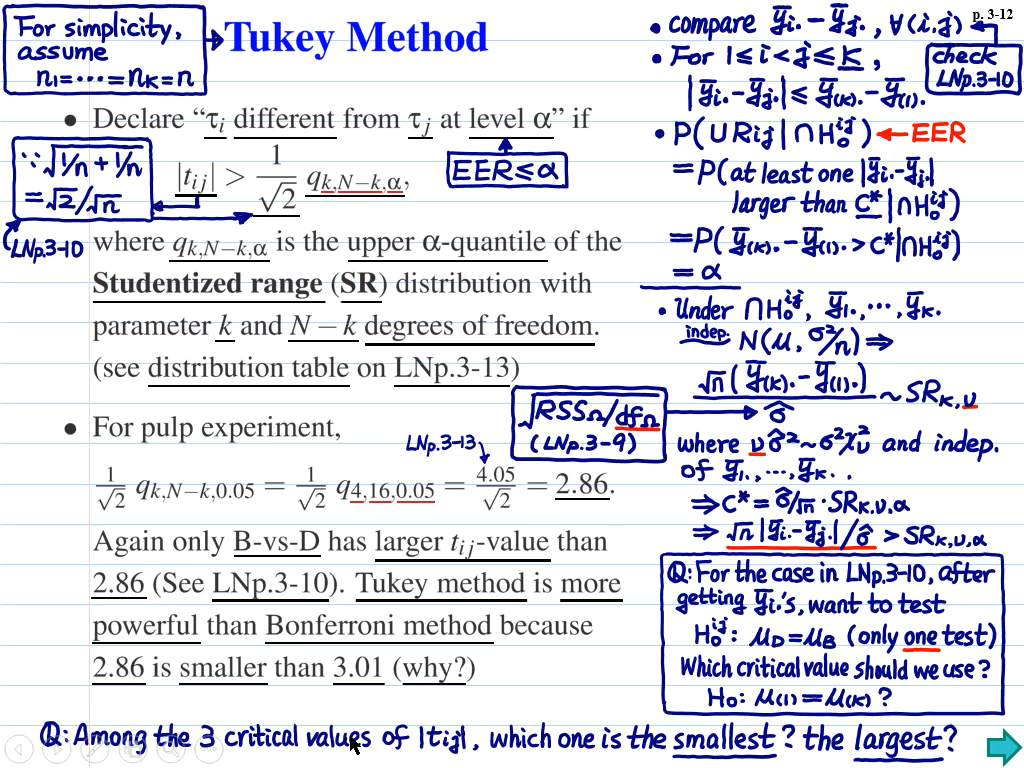 p. 3-12
For simplicity,
assume
n₁=⋯=n_K=n
Tukey Method
• Declare “τᵢ different from τⱼ at level α” if
∵ √(1/n + 1/n)
= √2/√n
LNp.3-10
|t_ij| > 1/√2 q_{k,N−k,α},
EER ≤ α
where q_{k,N−k,α} is the upper α-quantile of the
Studentized range (SR) distribution with
parameter k and N − k degrees of freedom.
(see distribution table on LNp.3-13)
• For pulp experiment,
LNp.3-13
1/√2 q_{k,N−k,0.05} = 1/√2 q_{4,16,0.05} = 4.05/√2 = 2.86.
Again only B-vs-D has larger t_ij-value than
2.86 (See LNp.3-10). Tukey method is more
powerful than Bonferroni method because
2.86 is smaller than 3.01 (why?)
• compare ȳ_i. − ȳ_j. , ∀(i,j)
check
LNp.3-10
• For 1 ≤ i < j ≤ K,
|ȳ_i. − ȳ_j.| ≤ ȳ_(K). − ȳ_(1).
• P(∪R_ij | ∩H₀^ij) ← EER
= P(at least one |ȳ_i. − ȳ_j.|
larger than C* | ∩H₀^ij)
= P(ȳ_(K). − ȳ_(1). > C* | ∩H₀^ij)
= α
• Under ∩H₀^ij, ȳ_1., ⋯, ȳ_K.
indep. N(μ, σ²/n) ⇒
√n(ȳ_(K). − ȳ_(1).)/σ̂ ~ SR_{K,υ}
√(RSS_Ω/df_Ω)
(LNp.3-9)
where υσ̂² ~ σ²χ²_υ and indep.
of ȳ_1., ⋯, ȳ_K. .
⇒ C* = σ̂/√n · SR_{K,υ,α}
⇒ √n |ȳ_i. − ȳ_j.|/σ̂ > SR_{K,υ,α}
Q: For the case in LNp.3-10, after
getting ȳ_i.'s, want to test
H₀^ij: μ_D = μ_B (only one test)
Which critical value should we use?
H₀: μ_(1) = μ_(K) ?
Q: Among the 3 critical values of |t_ij|, which one is the smallest? the largest?